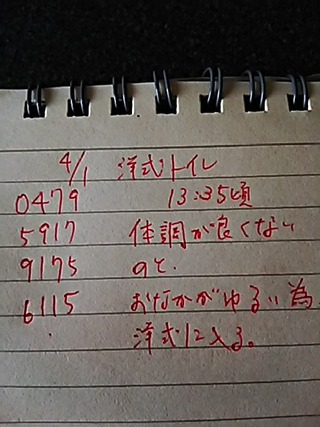 4/1 洋式トイレ
0479 13:35頃
5917 体調が良くない
9175 のと、
6115 おなかがゆるい為
洋式に入る。